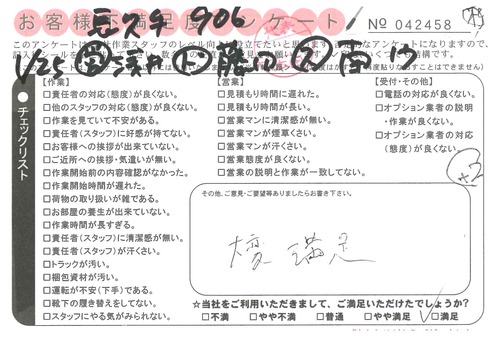 お客様不満足度アンケート
№ 042458
【作業】
□責任者の対応(態度)が良くない。
□他のスタッフの対応(態度)が良くない。
□作業を見ていて不安がある。
□責任者(スタッフ)に好感が持てない。
□お客様への挨拶が出来ていない。
□ご近所への挨拶・気遣いが無い。
□作業開始前の内容確認がなかった。
□作業開始時間が遅れた。
□荷物の取り扱いが雑である。
□お部屋の養生が出来ていない。
□作業時間が長すぎる。
□責任者(スタッフ)に清潔感が無い。
□責任者(スタッフ)が汗くさい。
□トラックが汚い。
□梱包資材が汚い。
□運転が不安(下手)である。
□靴下の履き替えをしてない。
□スタッフにやる気がみられない。
【営業】
□見積もり時間に遅れた。
□見積もり時間が長い。
□営業マンに清潔感が無い。
□営業マンが煙草くさい。
□営業マンが汗くさい。
□営業態度が良くない。
□営業の説明と作業が一致してない。
【受付・その他】
□電話の対応が良くない。
□オプション業者の説明
・作業が良くない。
□オプション業者の対応
(態度)が良くない。
●チェックリスト
その他、ご意見・ご要望等ありましたらお書き下さい。
大変 満足
☆当社をご利用いただきまして、ご満足いただけたでしょうか?
□不満 □やや不満 □普通 □やや満足 □満足